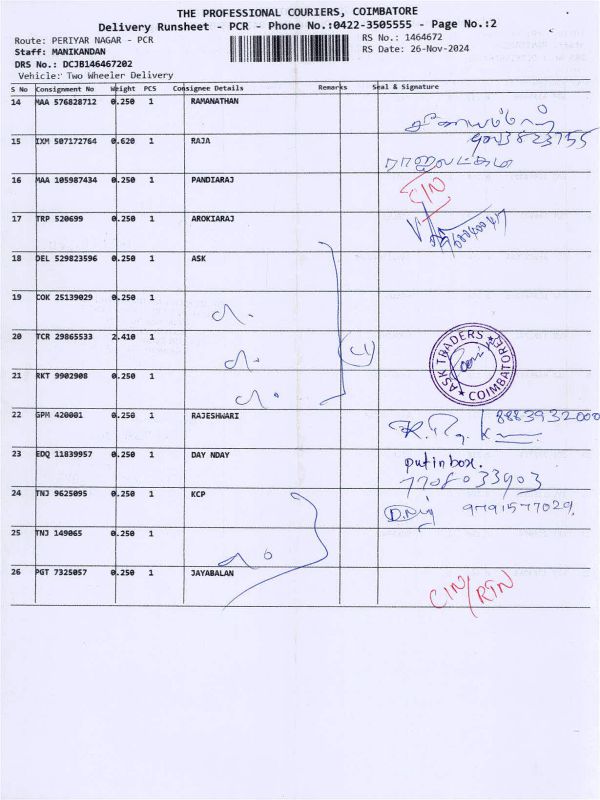 THE PROFESSIONAL COURIERS, COIMBATORE
Delivery Runsheet - PCR - Phone No.:0422-3505555 - Page No.:2
Route: PERIYAR NAGAR - PCR
RS No.: 1464672
Staff: MANIKANDAN
RS Date: 26-Nov-2024
DRS No.: DCJB146467202
Vehicle: Two Wheeler Delivery
S No Consignment No Weight PCS Consignee Details Remarks Seal & Signature
14 MAA 576828712 0.250 1 RAMANATHAN
15 IXM 507172764 0.620 1 RAJA
16 MAA 105987434 0.250 1 PANDIARAJ CIN
17 TRP 520699 0.250 1 AROKIARAJ
18 DEL 529823596 0.250 1 ASK
19 COK 25139029 0.250 1
20 TCR 29865533 2.410 1
ASK TRADERS ★ COIMBATORE ★
21 RKT 9902908 0.250 1
22 GPM 420001 0.250 1 RAJESHWARI 8883932000
23 EDQ 11839957 0.250 1 DAY NDAY put in box.
7708033903
24 TNJ 9625095 0.250 1 KCP 9791577029
25 TNJ 149065 0.250 1
26 PGT 7325057 0.250 1 JAYABALAN CIN/RTN